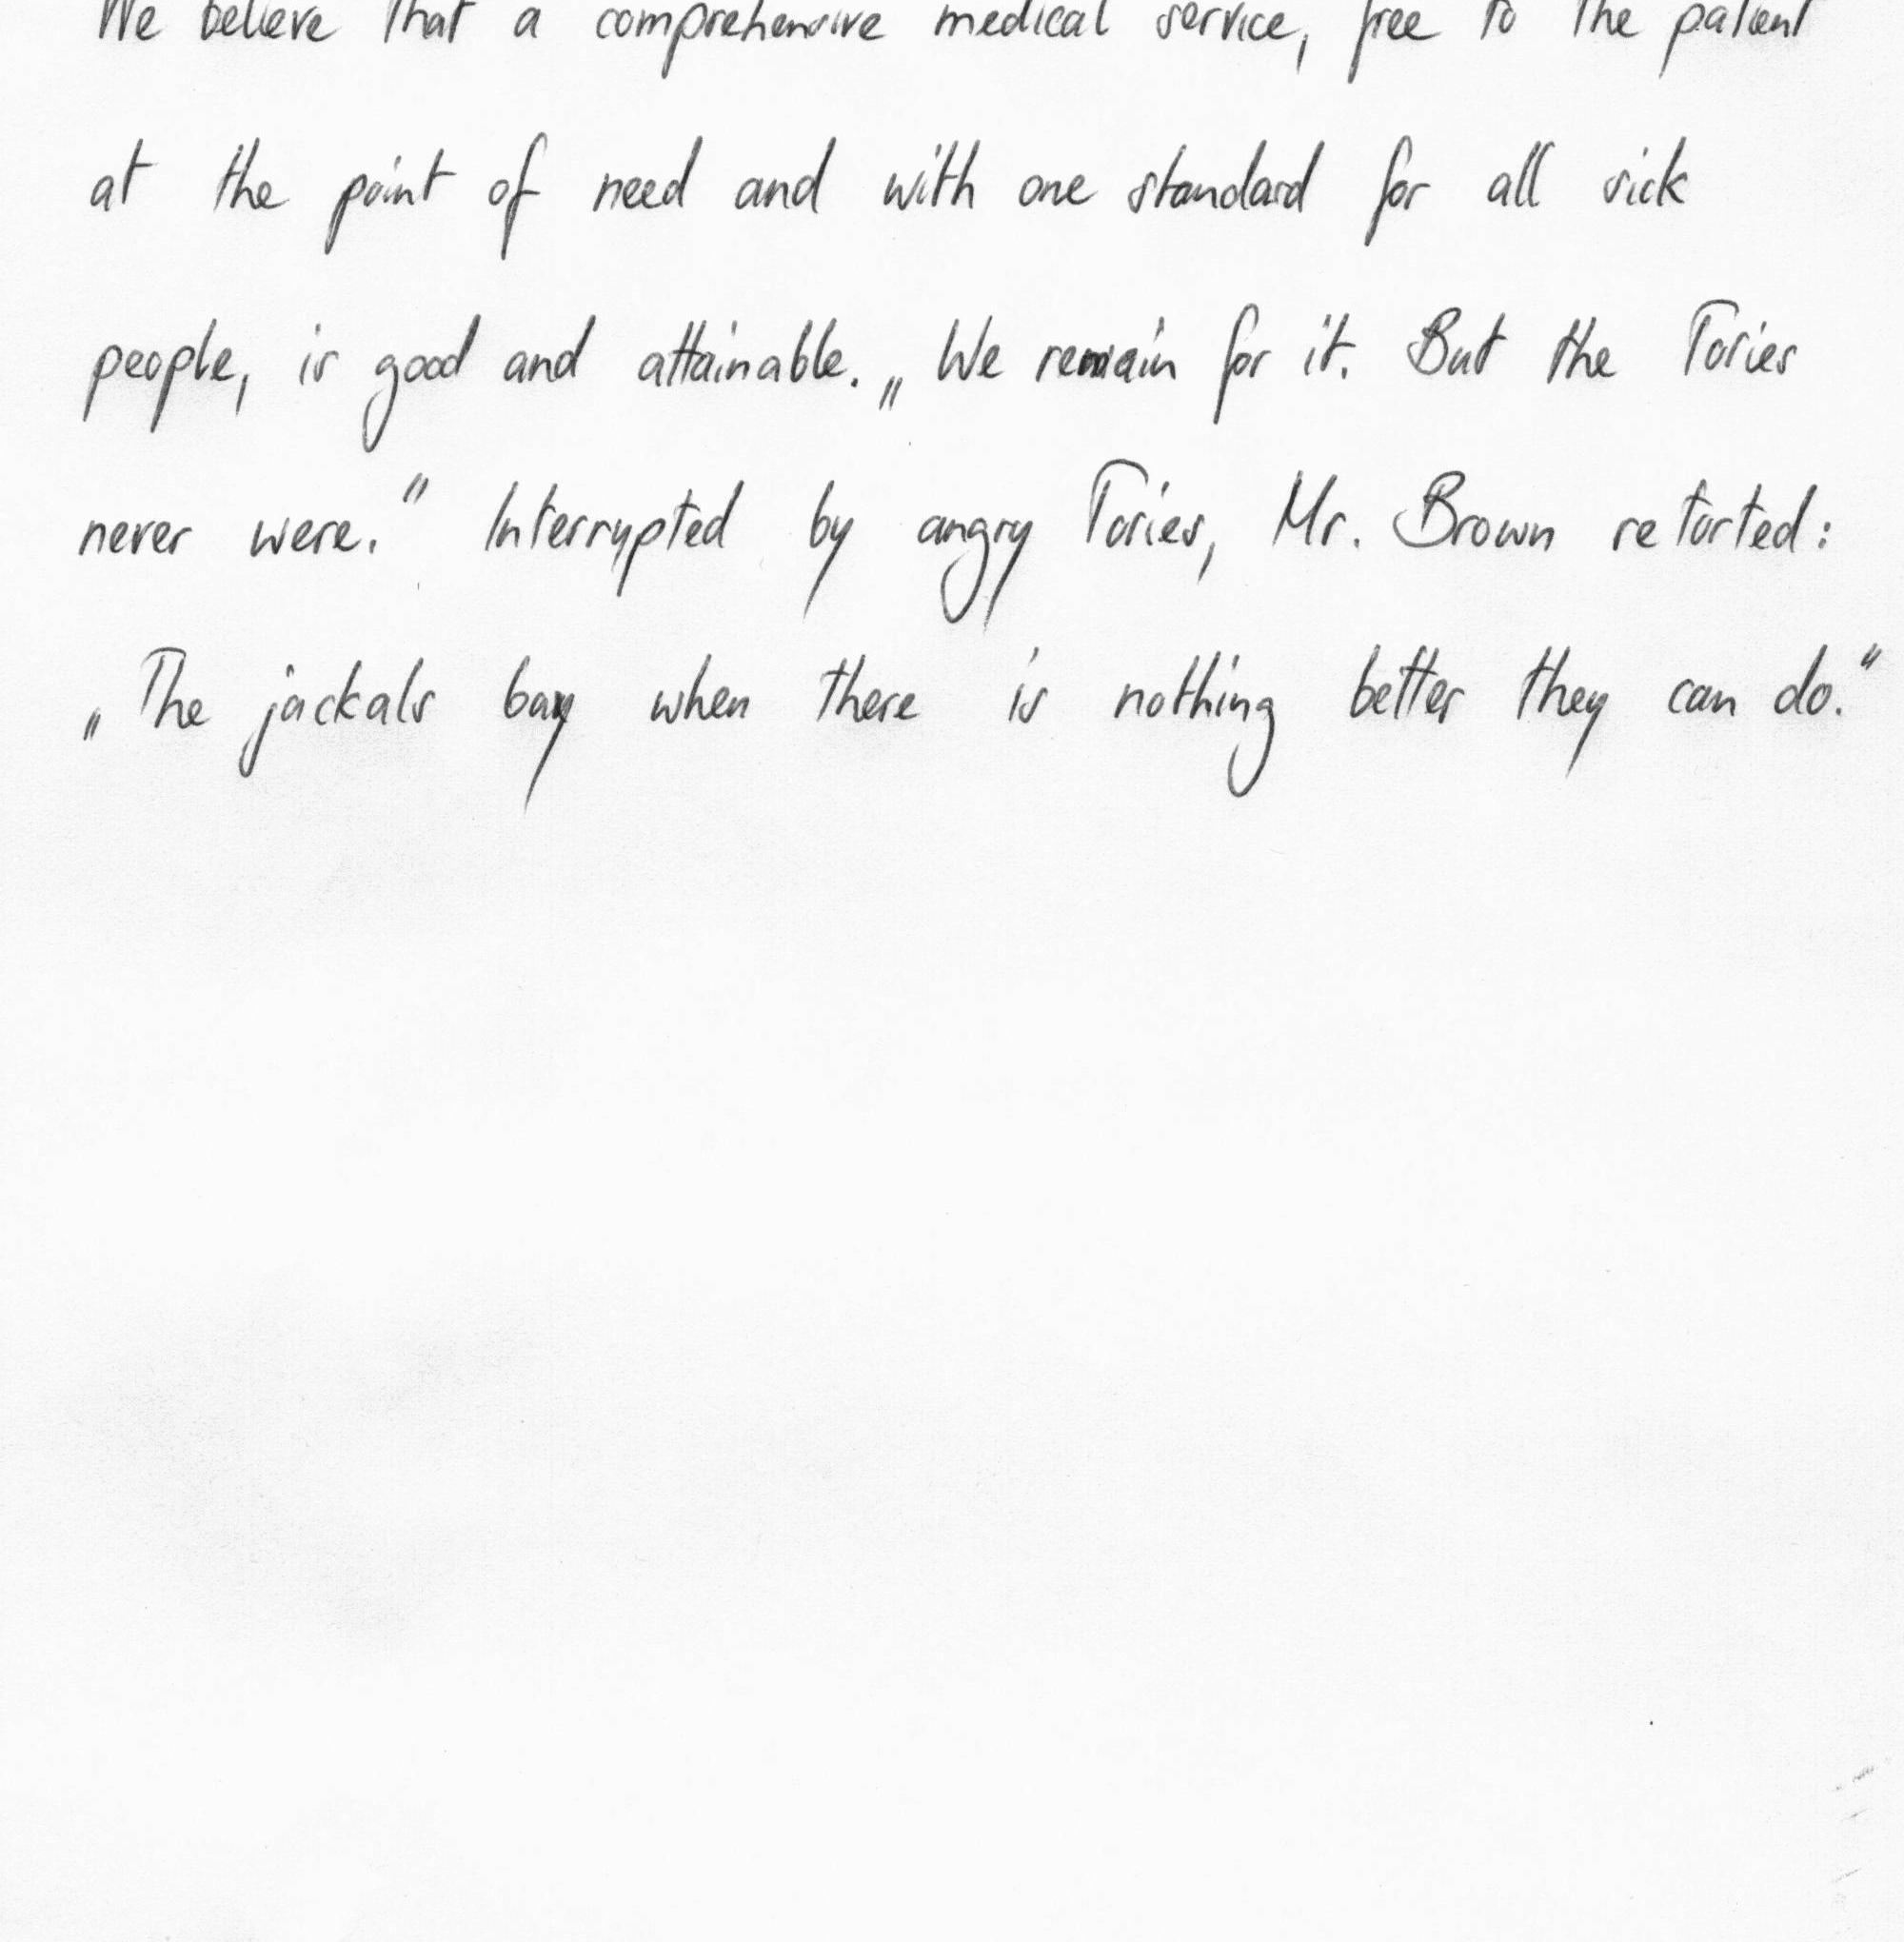 We believe that a comprehensive medical service, free to the patient
at the point of need and with one standard for all sick
people, is good and attainable. „We remain for it. But the Tories
never were.“ Interrupted by angry Tories, Mr. Brown retorted:
„The jackals bay when there is nothing better they can do.“